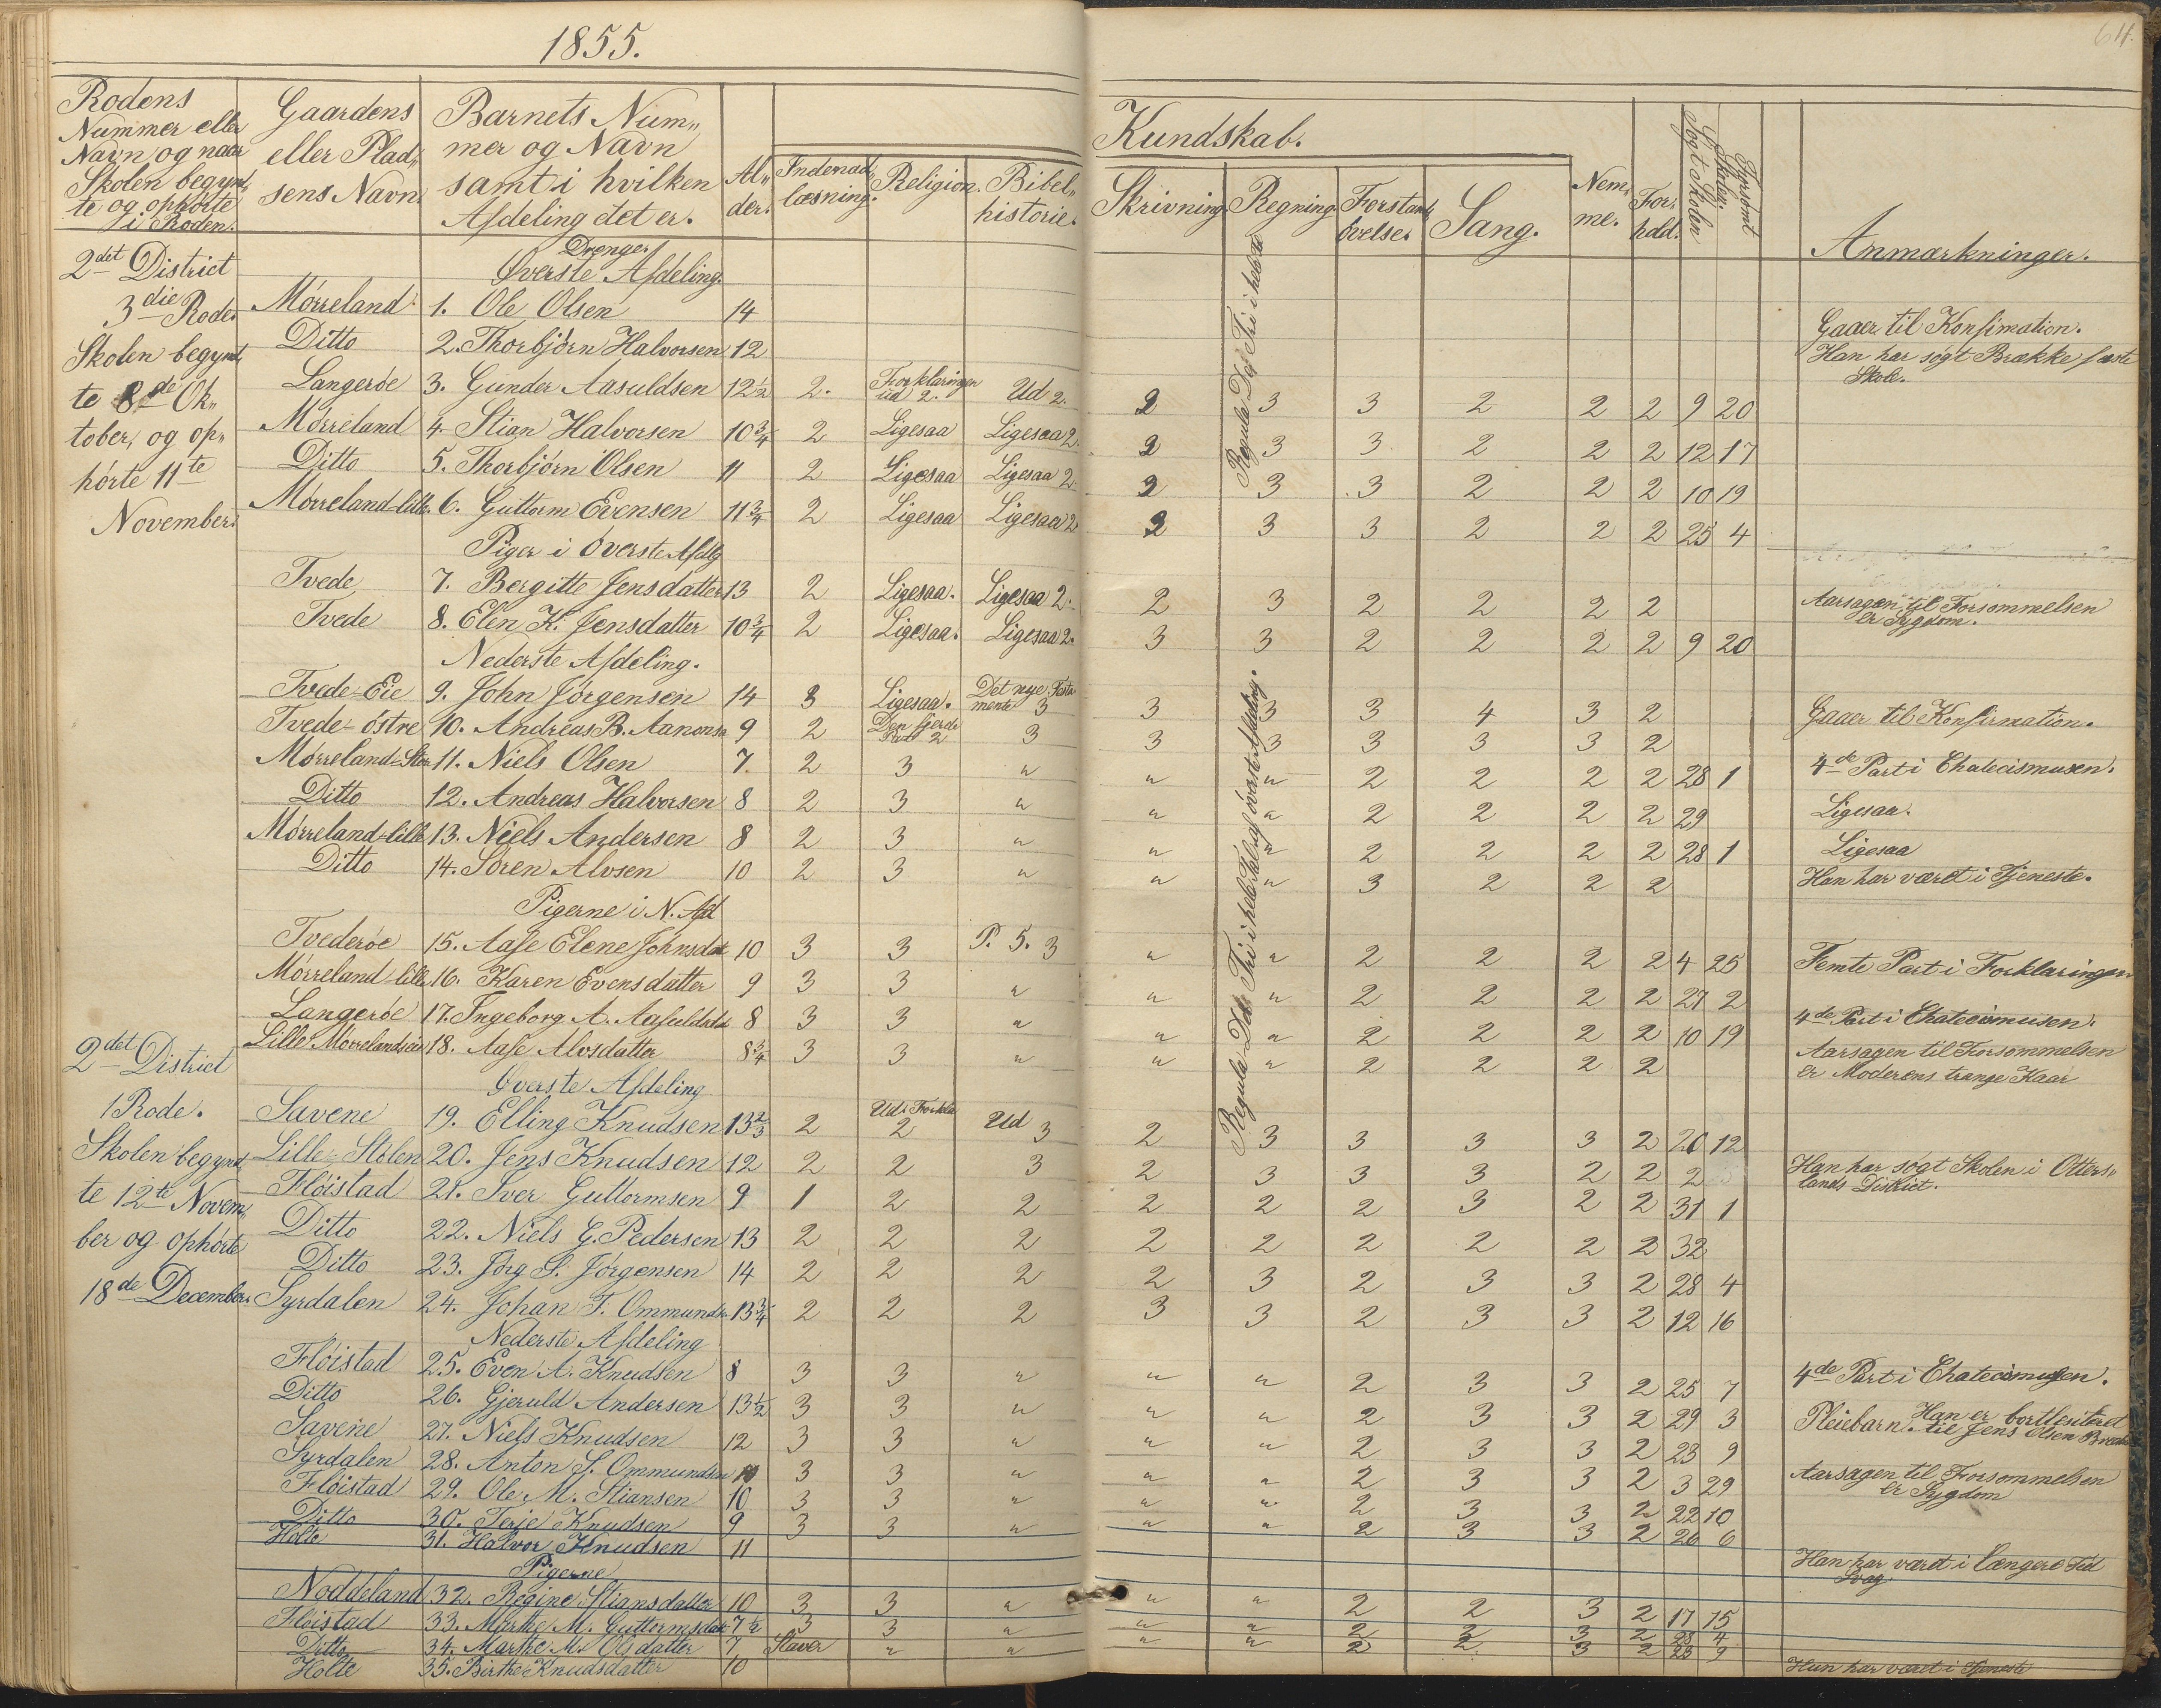 1855.
64.
Rodens
Nummer eller
Navn og naar
Skolen begynd„
te og ophørte
i Roden.
Gaardens
eller Plad„
sens Navn.
Barnets Num„
mer og Navn
samt i hvilken
Afdeling det er.
Al„
der.
Indenad„
læsning.
Religion.
Bibel„
historie.
Kundskab.
Skrivning.
Regning.
Forstands
övelse.
Sang.
Nem„
me.
For„
hold.
Søgt Skolen
Forsømt
Skolen.
Anmærkninger.
2det District
Drenge.
Øverste Afdeling.
3die Rode.
Skolen begynd„
te 8de Ok„
tober, og op„
hörte 11te
November.
Mörreland 1. Ole Olsen 14 Gaaer til Konfimation.
Ditto 2. Thorbjörn Halvorsen 12 Han har søgt Brække faste
Skole.
Langeröe 3. Gunder Aasuldsen 12½ 2. Forklaringen ud 2. Ud 2. 2 3 3 2 2 2 9 20
Mörreland 4. Stian Halvorsen 10¾ 2 Ligesaa Ligesaa 2. 2 3 3 2 2 2 12 17
Ditto 5. Thorbjörn Olsen 11 2 Ligesaa Ligesaa 2. 2 3 3 2 2 2 10 19
Mörreland-lille. 6. Guttorm Evensen 11¾ 2 Ligesaa Ligesaa 2. 2 3 3 2 2 2 25 4
Regula De Tri i hele
Piger i Överste Afdlg
Tvede 7. Bergitte Jensdatter 13 2 Ligesaa. Ligesaa 2. 2 3 2 2 2 2 Aarsagen til Forsømmelsen
er Sygdom.
Tvede 8. Elen K. Jensdatter 10¾ 2 Ligesaa. Ligesaa 2. 3 3 2 2 2 2 9 20
Nederste Afdeling.
Tvede-Eie 9. John Jörgensen 14 3 Ligesaa. Det nye Testa mente 3 3 3 3 4 3 2 Gaaer til Konfirmation.
Tvede-östre 10. Andreas B. Aanonsn 9 2 Den fjerde Part 2 3 3 3 3 3 3 2
Mörreland-Stor 11. Niels Olsen 7. 2 3 „ „ „ 2 2 2 2 28 1 4de Part i Chatecismusen.
Ditto 12. Andreas Halvorsen 8 2 3 „ „ „ 2 2 2 2 29 Ligesaa.
Mörreland-lille 13. Niels Andersen 8 2 3 „ „ „ 2 2 2 2 28 1 Ligesaa
Ditto 14. Sören Alvsen 10 2 3 „ „ „ 3 2 2 2 Han har været i Tjeneste.
Pigerne i N. Afd
Tvederöe 15. Aase Elene Johnsdat 10 3 3 P. 5. 3 „ „ 2 2 2 2 4 25 Femte Part i Forklaringen
Mörreland-lille 16. Karen Evensdatter 9 3 3 „ „ „ 2 2 2 2 27 2
Langeröe 17. Ingeborg A. Aasuldsdat 8 3 3 „ „ „ 2 2 2 2 10 19 4de Part i Chatecismusen.
Lille Mörrelandseie 18. Aase Alvsdatter 8¾ 3 3 „ „ „ 2 2 2 2 Aarsagen til Forsømmelsen
er Moderens trange Kaar
Regula De Tri i hele Tal af överste Afdeling.
2det District
1 Rode.
Skolen begynd„
te 12te Novem„
ber og ophörte
18de December.
Øverste Afdeling
Savene 19. Elling Knudsen 13⅔ 2 Ud i Forkla 2 Ud 3 2 3 3 3 3 2 20 12
Lille-Stölen 20. Jens Knudsen 12 2 2 3 2 3 3 3 2 2 2 Han har søgt Skolen i Otters„
lands District.
Flöistad 21. Iver Guttormsen 9 1 2 2 2 2 2 3 2 2 31 1
Ditto 22. Niels G. Pedersen 13 2 2 2 2 2 2 2 2 2 32
Ditto 23. Jörg S. Jörgensen 14 2 2 2 2 3 2 3 3 2 28 4
Syrdalen 24. Johan F. Ommundsn 13¾ 2 2 2 3 3 2 3 3 2 12 16
Nederste Afdeling
Flöistad 25. Even A. Knudsen 8 3 3 „ „ „ 2 3 3 2 25 7 4de Part i Chatecismusen.
Ditto 26. Gjeruld Andersen 13½ 3 3 „ „ „ 2 3 3 2 29 3 Pleiebarn. Han er bortleiteret
til Jens Olsen
Savene 27. Niels Knudsen 12 3 3 „ „ „ 2 3 3 2 23 9
Syrdalen 28. Anton S. Ommundsen 10 3 3 „ „ „ 2 3 3 2 3 29 Aarsagen til Forsømmelsen
er Sygdom
Flöistad 29. Ole M. Stiansen 10 3 3 „ „ „ 2 3 3 2 22 10
Ditto 30. Terje Knudsen 9 3 3 „ „ „ 2 3 3 2 26 6
Holte 31. Halvor Knudsen 11 Han har været i længere Tid
Svag
Pigerne
Noddeland 32. Regine Stiansdatter 10 3 3 „ „ „ 2 2 3 2 17 15
Flöistad 33. Marthe M. Guttormsdat 7½ 3 3 „ „ „ 2 2 3 2 28 4
Ditto 34. Marthe M. Olsdatter 7 Staver „ „ „ „ 2 2 3 2 23 9
Holte 35. Birthe Knudsdatter 10 Hun har været i Tjeneste